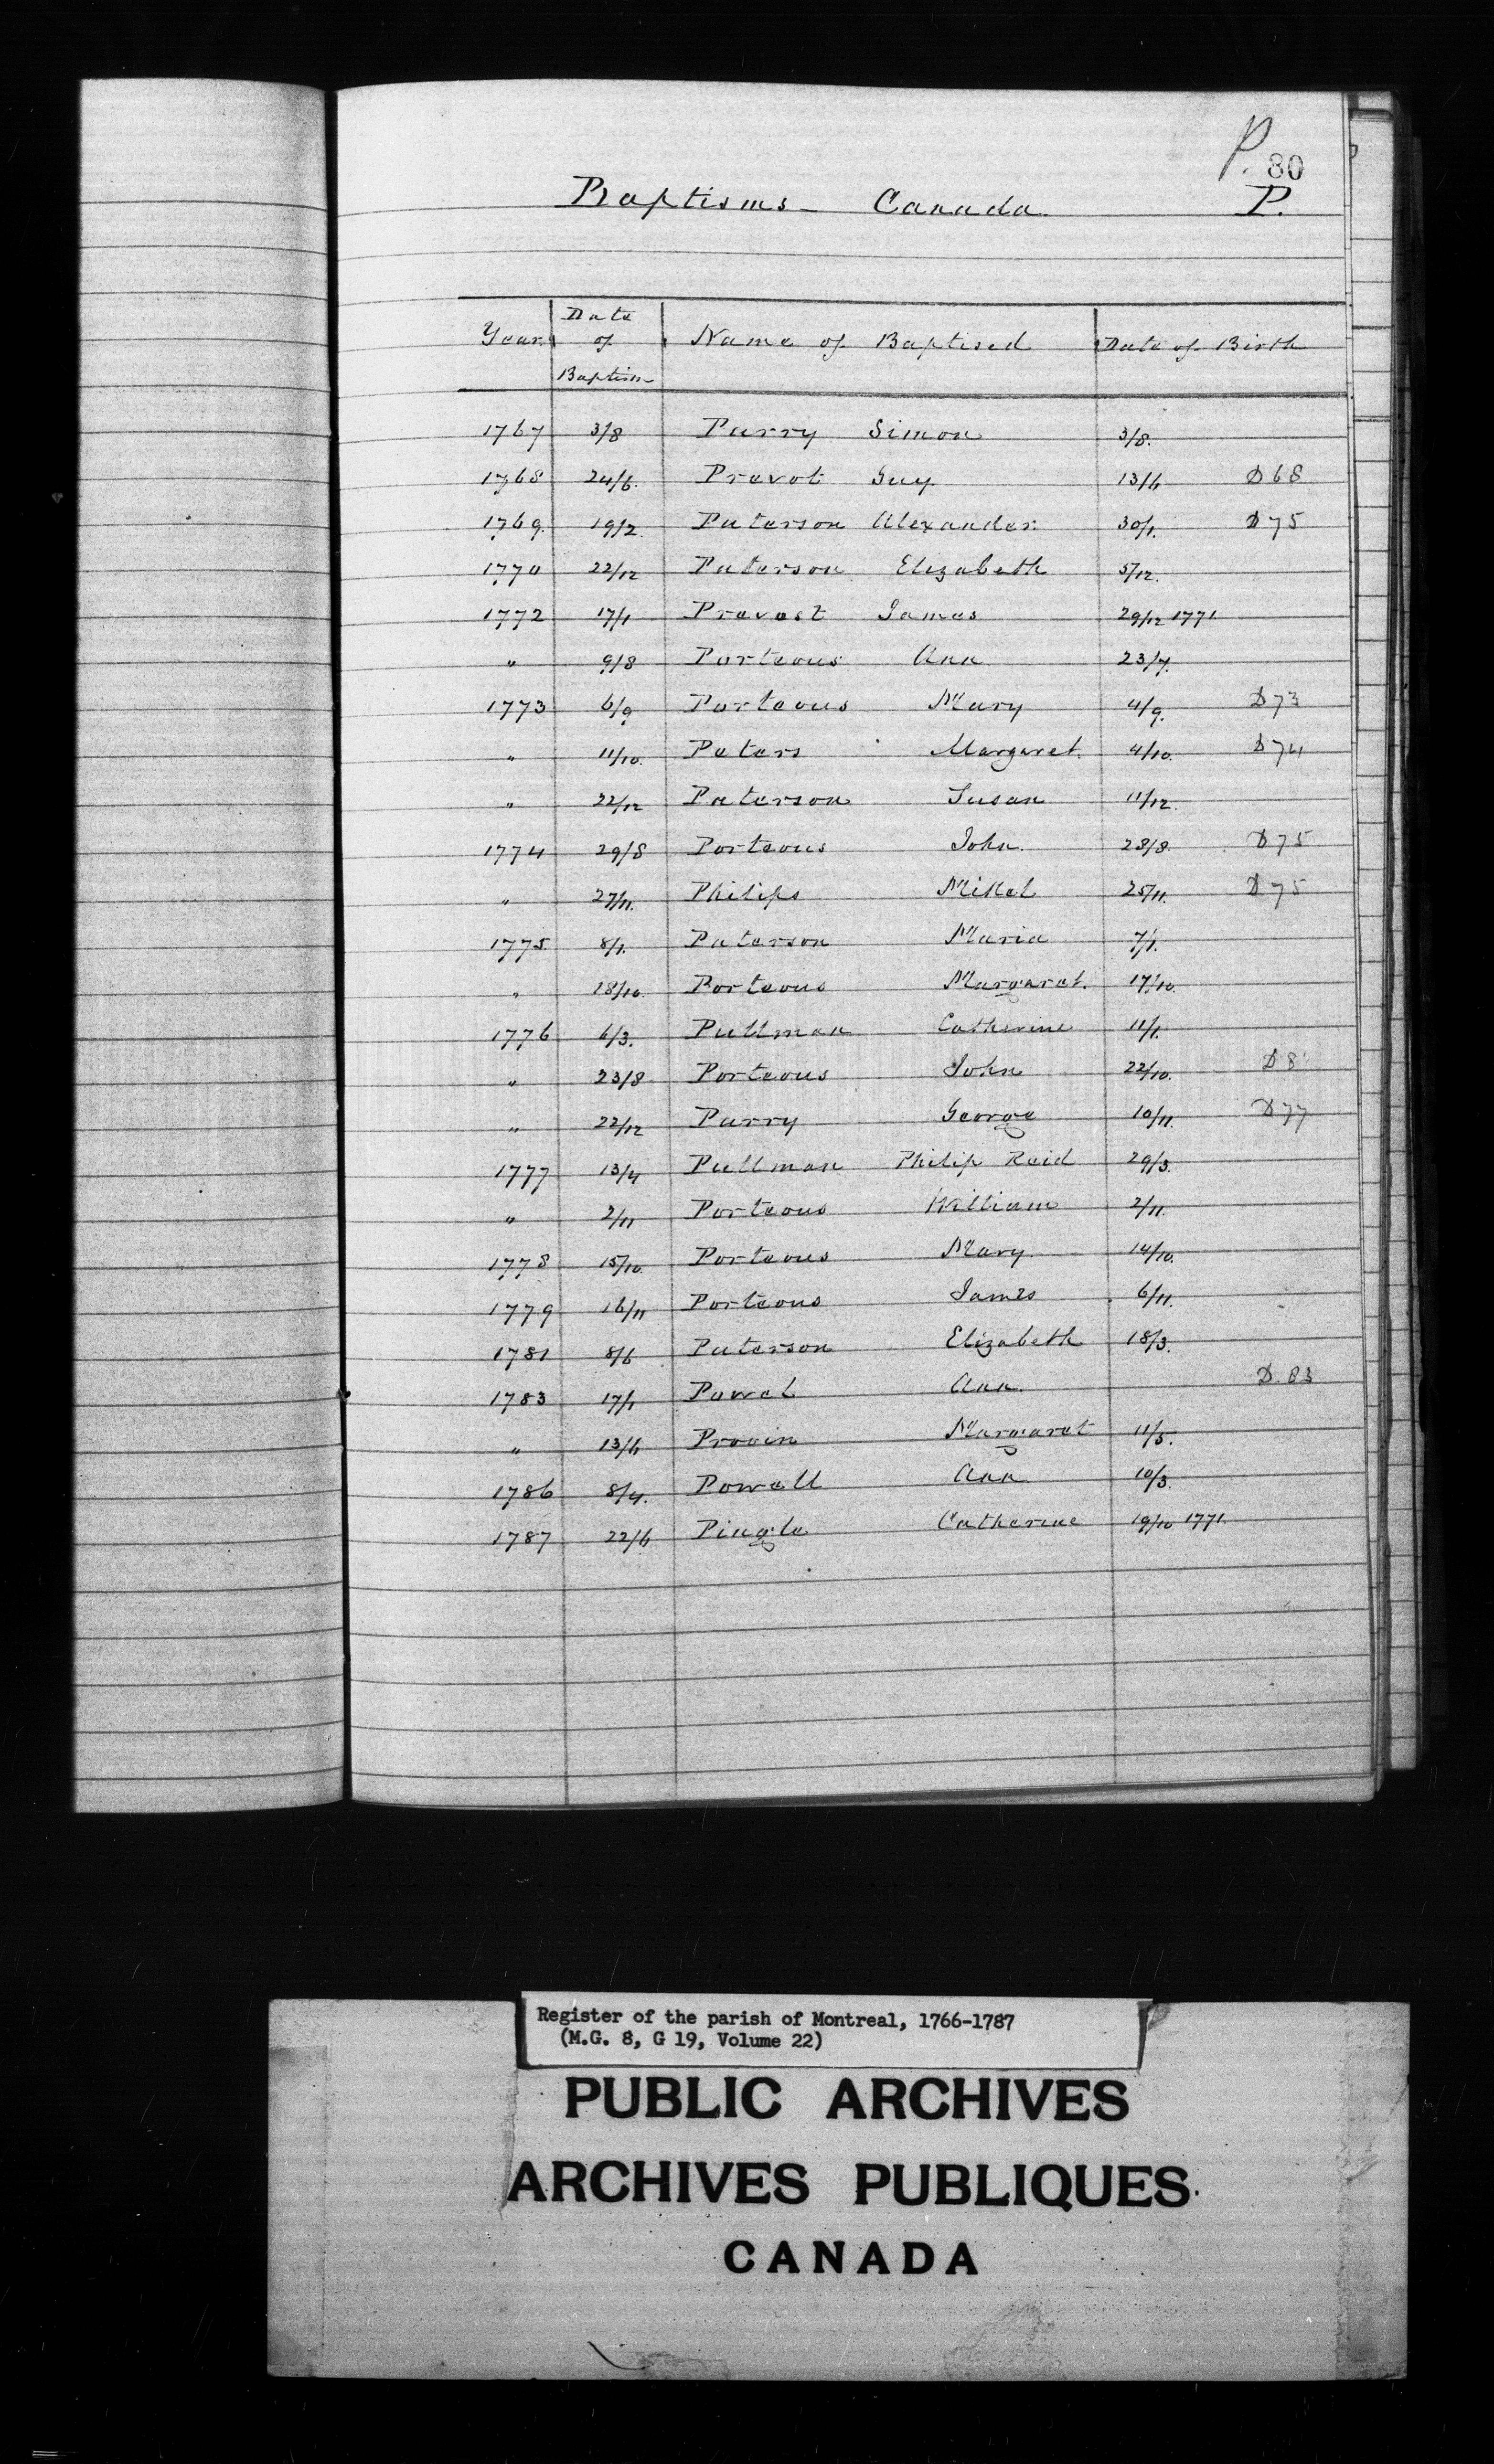 P. 80
Baptisms - Canada. P.
Year Date of Baptism Name of Baptised Date of Birth
1767 3/8 Parry Simon 3/8.
1768 24/6. Prevot Guy 13/6 D 68
1769. 19/2 Paterson Alexander. 30/1. D 75
1770 22/12 Paterson Elizabeth 5/12.
1772 17/1 Prevost James 29/12 1771.
" 9/8 Porteous Ann 23/7.
1773 6/9 Porteous Mary 4/9. D 73
" 11/10. Peters Margaret. 4/10. D 74
" 22/12 Paterson Susan 11/12.
1774 29/8 Porteous John. 28/8. D 75
" 27/11. Philips Mikel 25/11. D 75
1775. 8/1. Paterson Maria 7/1.
" 18/10. Porteous Margaret. 17/10.
1776 6/3. Pullman Catherine 11/1.
" 23/8 Porteous John 22/10. D 8
" 22/12 Parry George 10/11. D 77
1777 13/4 Pullman Philip Reid 29/3.
" 2/11 Porteous William 2/11.
1778 15/10. Porteous Mary. 14/10.
1779 16/11 Porteous James 6/11.
1781 8/6 Paterson Elizabeth 18/3.
1783 17/1 Powel Ann. D. 83
" 13/6 Provin Margaret 11/5.
1786 8/4. Powell Ann 10/3.
1787 22/6 Pingle Catherine 19/10 1771.
Register of the parish of Montreal, 1766-1787
(M.G. 8, G 19, Volume 22)
PUBLIC ARCHIVES
ARCHIVES PUBLIQUES
CANADA